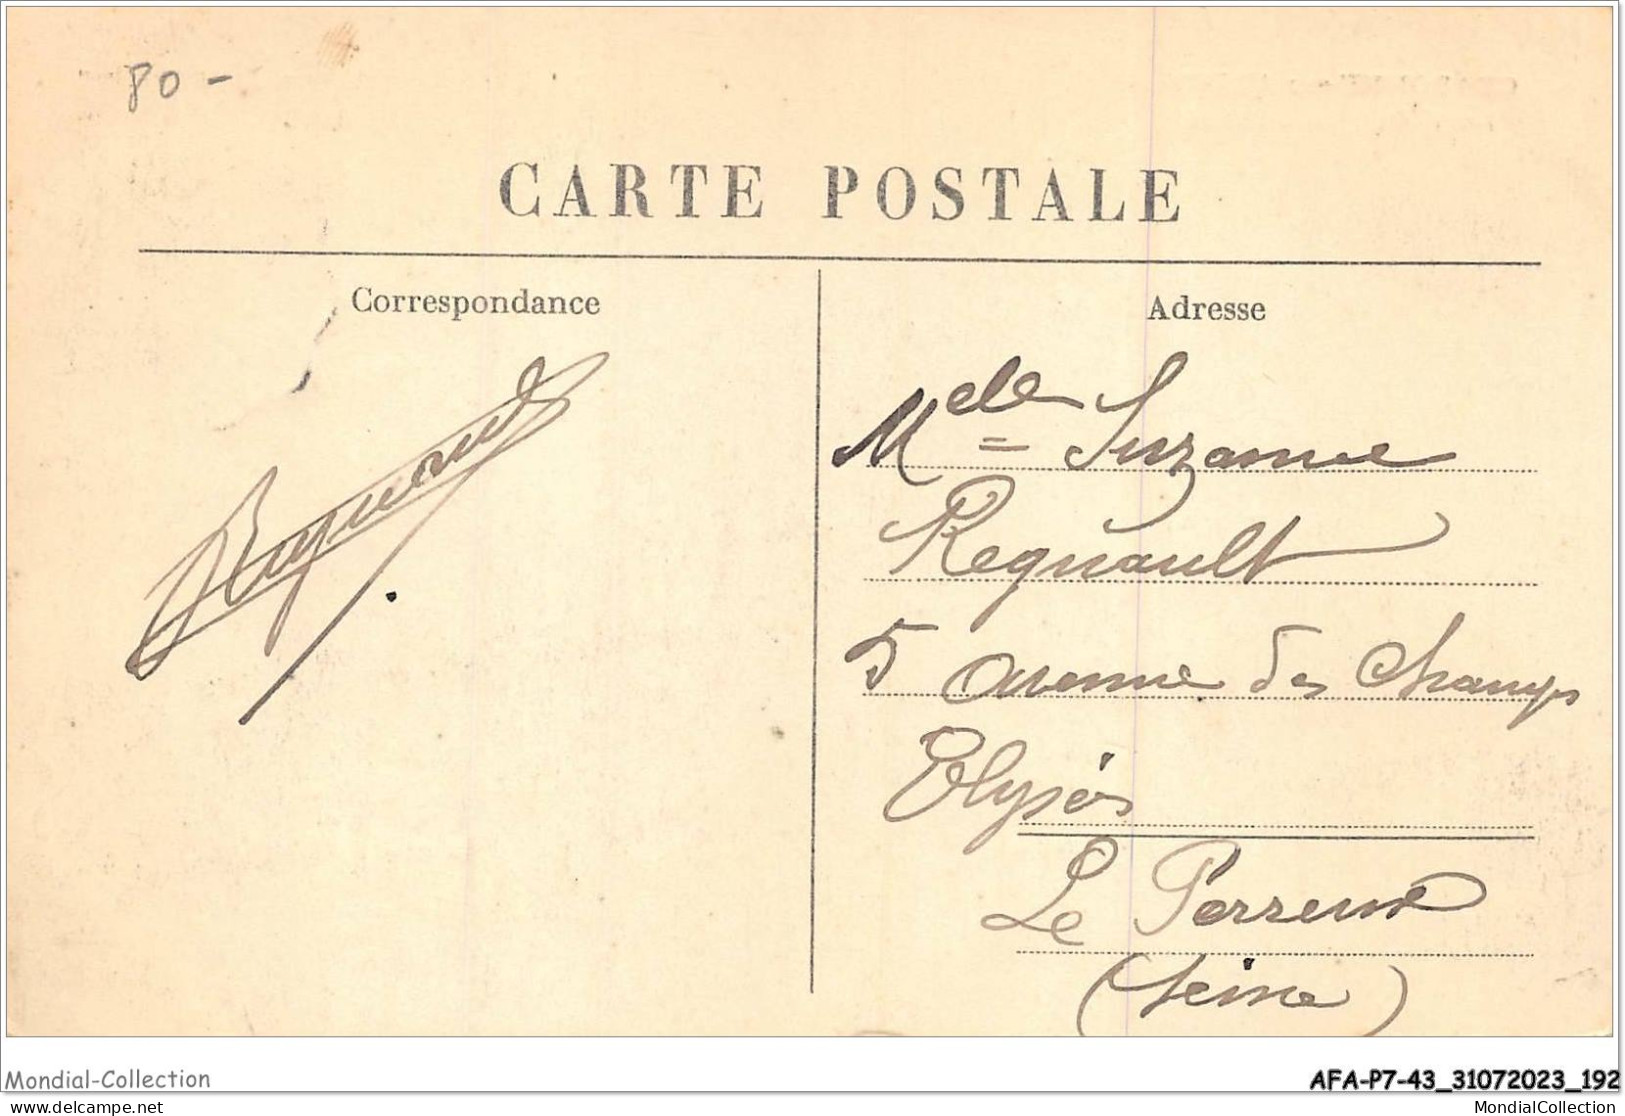 80 -
CARTE POSTALE
Correspondance
Adresse
Melle Suzanne
Regnault
5 avenue des Champs
Elysées
Le Perreux
(Seine)
Mondial-Collection
AFA-P7-43_31072023_192
www.delcampe.net
MondialCollection